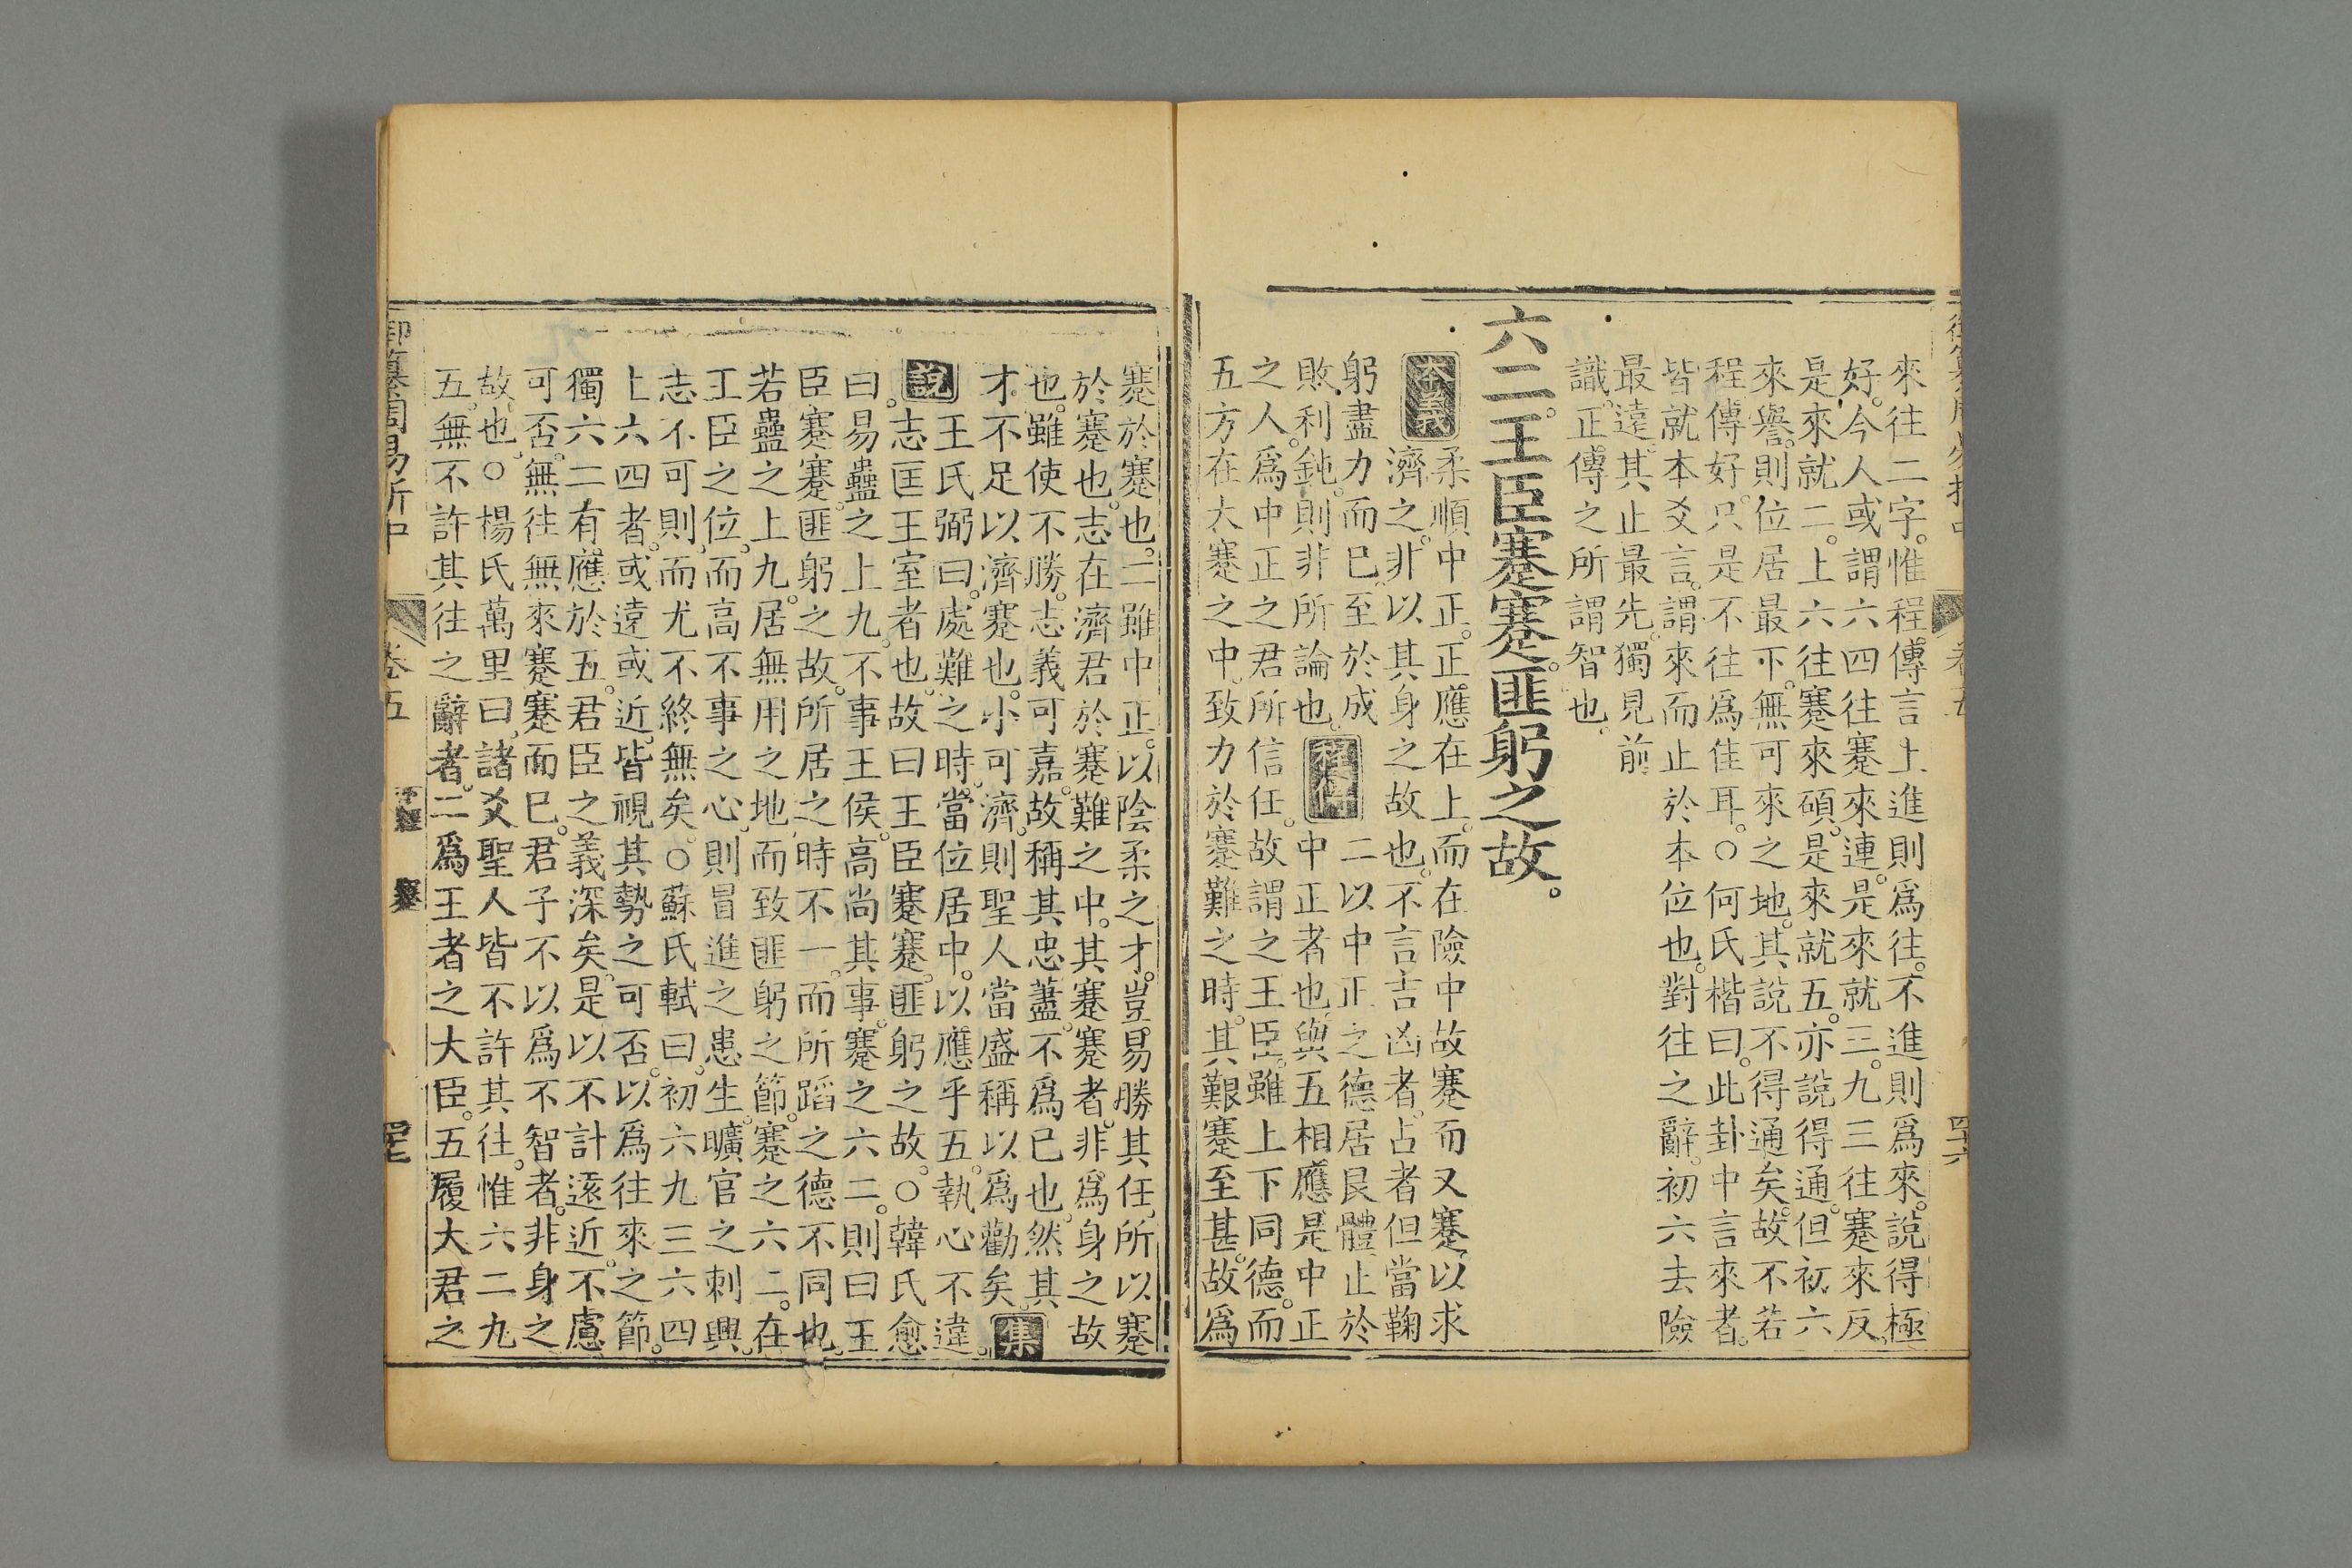 來往二字。惟程傳言上進則爲往。不進則爲來。說得極
好。今人或謂六四往蹇來連。是來就三。九三往蹇來反。
是來就二。上六往蹇來碩。是來就五。亦說得通。但初六
來譽。則位居最下。無可來之地。其說不得通矣。故不若
程傳好。只是不往爲佳耳。○何氏楷曰。此卦中言來者。
皆就本爻言。謂來而止於本位也。對往之辭。初六去險
最遠。其止最先。獨見前
識。正傳之所謂智也。
六二。王臣蹇蹇。匪躬之故。
本義 柔順中正。正應在上。而在險中故蹇而又蹇。以求
濟之。非以其身之故也。不言吉凶者。占者但當鞠
躬盡力而已。至於成
敗利鈍。則非所論也。 程傳 二以中正之德居艮體。止於
中正者也。與五相應。是中正
之人。爲中正之君所信任。故謂之王臣。雖上下同德。而
五方在大蹇之中。致力於蹇難之時。其艱蹇至甚。故爲
蹇於蹇也。二雖中正。以陰柔之才。豈易勝其任。所以蹇
於蹇也。志在濟君於蹇難之中。其蹇蹇者。非爲身之故
也。雖使不勝。志義可嘉。故稱其忠藎。不爲已也。然其
才不足以濟蹇也。小可濟。則聖人當盛稱以爲勸矣。 集
說 王氏弼曰。處難之時。當位居中。以應乎五。執心不違。
志匡王室者也。故曰王臣蹇蹇。匪躬之故。○韓氏愈
曰。易蠱之上九。不事王侯。高尚其事。蹇之六二。則曰王
臣蹇蹇。匪躬之故。所居之時不一。而所蹈之德不同也。
若蠱之上九。居無用之地。而致匪躬之節。蹇之六二。在
王臣之位。而高不事之心。則冒進之患生。曠官之刺興。
志不可則。而尤不終無矣。○蘇氏軾曰。初六九三六四
上六四者。或遠或近。皆視其勢之可否。以爲往來之節。
獨六二有應於五。君臣之義深矣。是以不計遠近。不慮
可否。無往無來。蹇蹇而已。君子不以爲不智者。非身之
故也。○楊氏萬里曰。諸爻聖人皆不許其往。惟六二九
五。無不許其往之辭者。二爲王者之大臣。五履大君之
御纂周易折中 卷五 蹇 四七